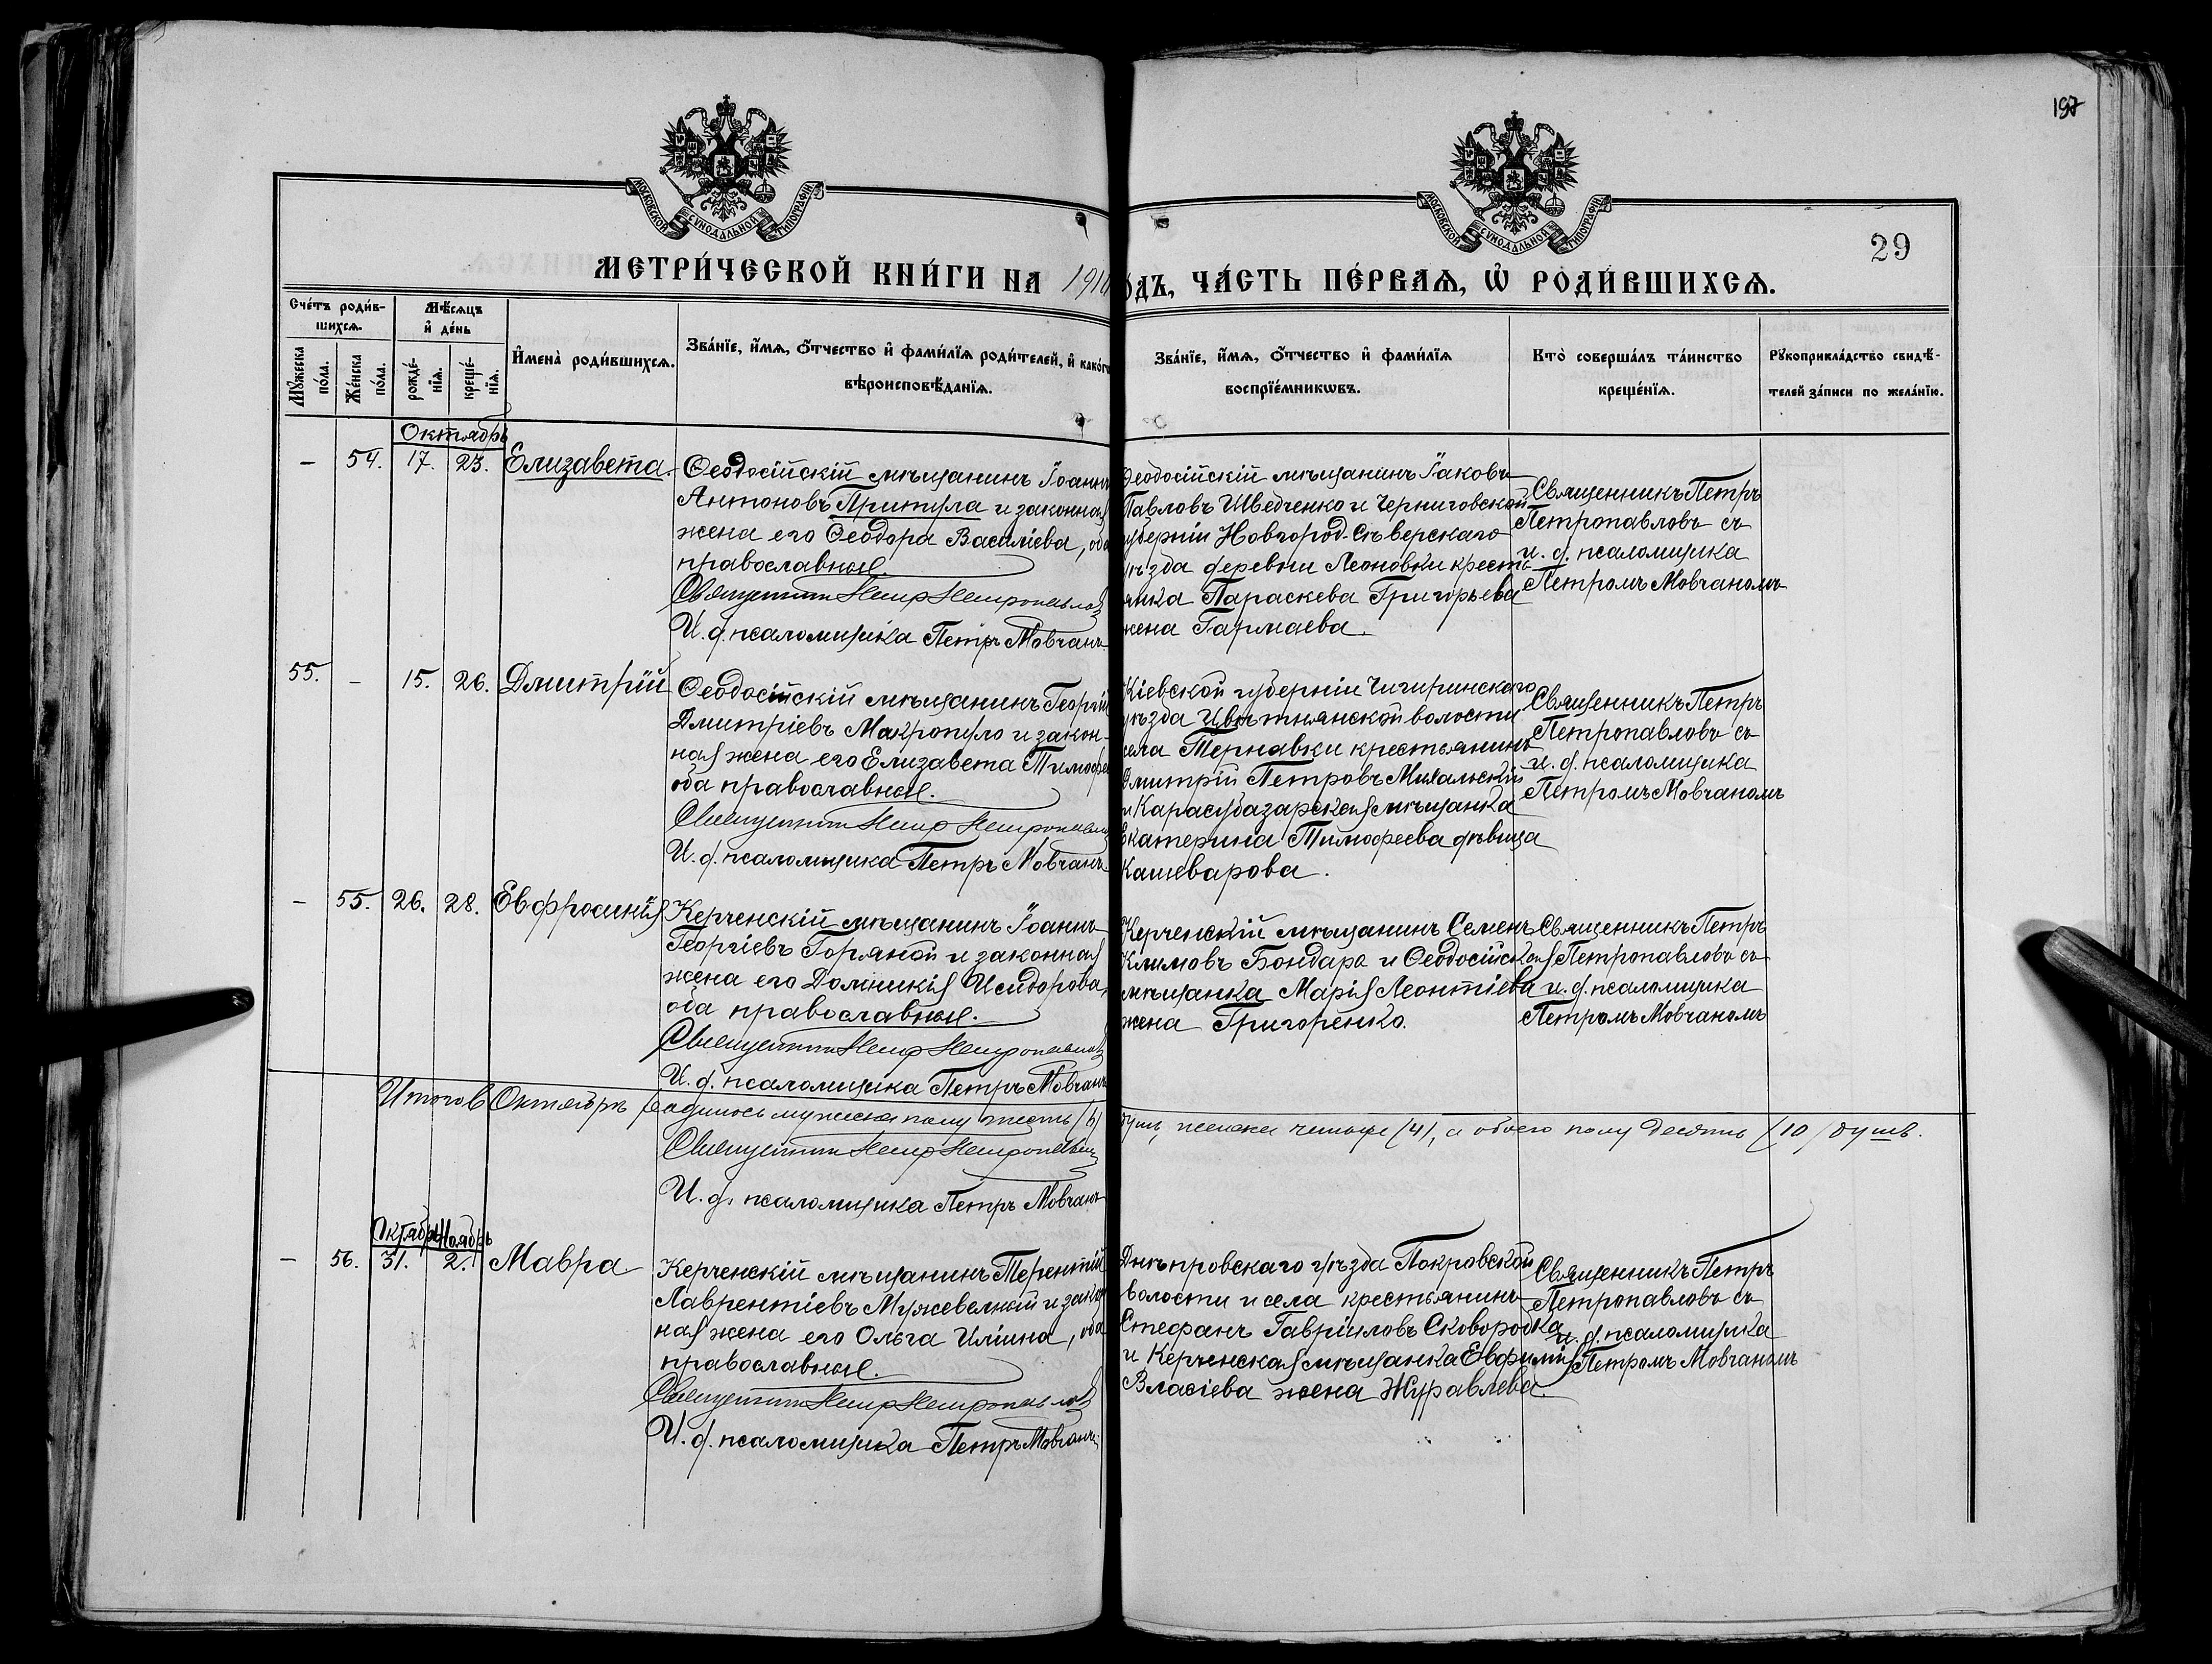 197
29
МОСКОВСКОЙ СѴНОДАЛЬНОЙ ТИПОГРАФІИ
МОСКОВСКОЙ СѴНОДАЛЬНОЙ ТИПОГРАФІИ
МЕТРИ́ЧЕСКОЙ КНИ́ГИ НА 1910
ОДЪ, ЧА́СТЬ ПЕ́РВАѦ, Ѡ҆ РОДИ́ВШИХСѦ.
Сче́тъ роди́в-
шихсѧ.
Мꙋ́жеска по́ла.
Же́нска по́ла.
Мѣ́сѧцъ
и҆ де́нь
рожде́-
нїѧ.
креще́-
нїѧ.
И҆мена̀ роди́вшихсѧ.
Зва́нїе, и҆́мѧ, ѻ҆́тчество и҆ фами́лїѧ роди́телей, и҆ како́гѡ
вѣроисповѣ́данїѧ.
Зва́нїе, и҆́мѧ, ѻ҆́тчество и҆ фами́лїѧ
воспрїе́мникѡвъ.
Кто̀ соверша́лъ та́инство
креще́нїѧ.
Рꙋкоприкла́дство свидѣ́-
телей за́писи по жела́нїю.
Октябрь
— 54. 17. 23. Елизавета.
Ѳеодосійскій мѣщанинъ Іоаннъ
Антоновъ Притула и законная
жена его Ѳеодора Василіева, оба
православные.
Священникъ Петръ Петропавлов
И. д. псаломщика Петръ Мовчанъ
Ѳеодосійскій мѣщанинъ Іаковъ
Павловъ Шведченко и Черниговской
губерніи Новгород-Сѣверскаго
уѣзда деревни Леоновки кресть-
янка Параскева Григорьева
жена Гармаева.
Священникъ Петръ
Петропавловъ съ
и. д. псаломщика
Петромъ Мовчаномъ
55. — 15. 26. Дмитрій
Ѳеодосійскій мѣщанинъ Георгій
Дмитріевъ Макропуло и закон-
ная жена его Елизавета Тимофее
оба православные.
Священникъ Петръ Петропавлов
И. д. псаломщика Петръ Мовчанъ
Кіевской губерніи Чигиринскаго
уѣзда Цвѣтнянской волости
села Тернавки крестьянинъ
Дмитрій Петровъ Михальскій
и Карасубазарская мѣщанка
Екатерина Тимофеева дѣвица
Кашеварова.
Священникъ Петръ
Петропавловъ съ
и. д. псаломщика
Петромъ Мовчаномъ
— 55. 26. 28. Евфросинія
Керченскій мѣщанинъ Іоаннъ
Георгіевъ Горяной и законная
жена его Домникія Исидорова,
оба православные.
Священникъ Петръ Петропавлов
И. д. псаломщика Петръ Мовчанъ
Керченскій мѣщанинъ Семенъ
Климовъ Бондарь и Ѳеодосійская
мѣщанка Марія Леонтіева
жена Григоренко.
Священникъ Петръ
Петропавловъ съ
и. д. псаломщика
Петромъ Мовчаномъ
Итого в Октябрѣ родилось мужеска полу шесть (6)
душъ, женска четыре (4), а обоего полу десять (10) душъ.
Священникъ Петръ Петропавлов
И. д. псаломщика Петръ Мовчанъ
Октябрь Ноябрь
— 56. 31. 2. Мавра
Керченскій мѣщанинъ Терентій
Лаврентіевъ Мужевелкой и закон
ная жена его Ольга Иліина, оба
православные.
Священникъ Петръ Петропавлов
И. д. псаломщика Петръ Мовчанъ
Днѣпровскаго уѣзда Покровской
волости и села крестьянинъ
Стефанъ Гавріиловъ Сковородка
и Керченская мѣщанка Евфимія
Власіева жена Журавлева.
Священникъ Петръ
Петропавловъ съ
и. д. псаломщика
Петромъ Мовчаномъ